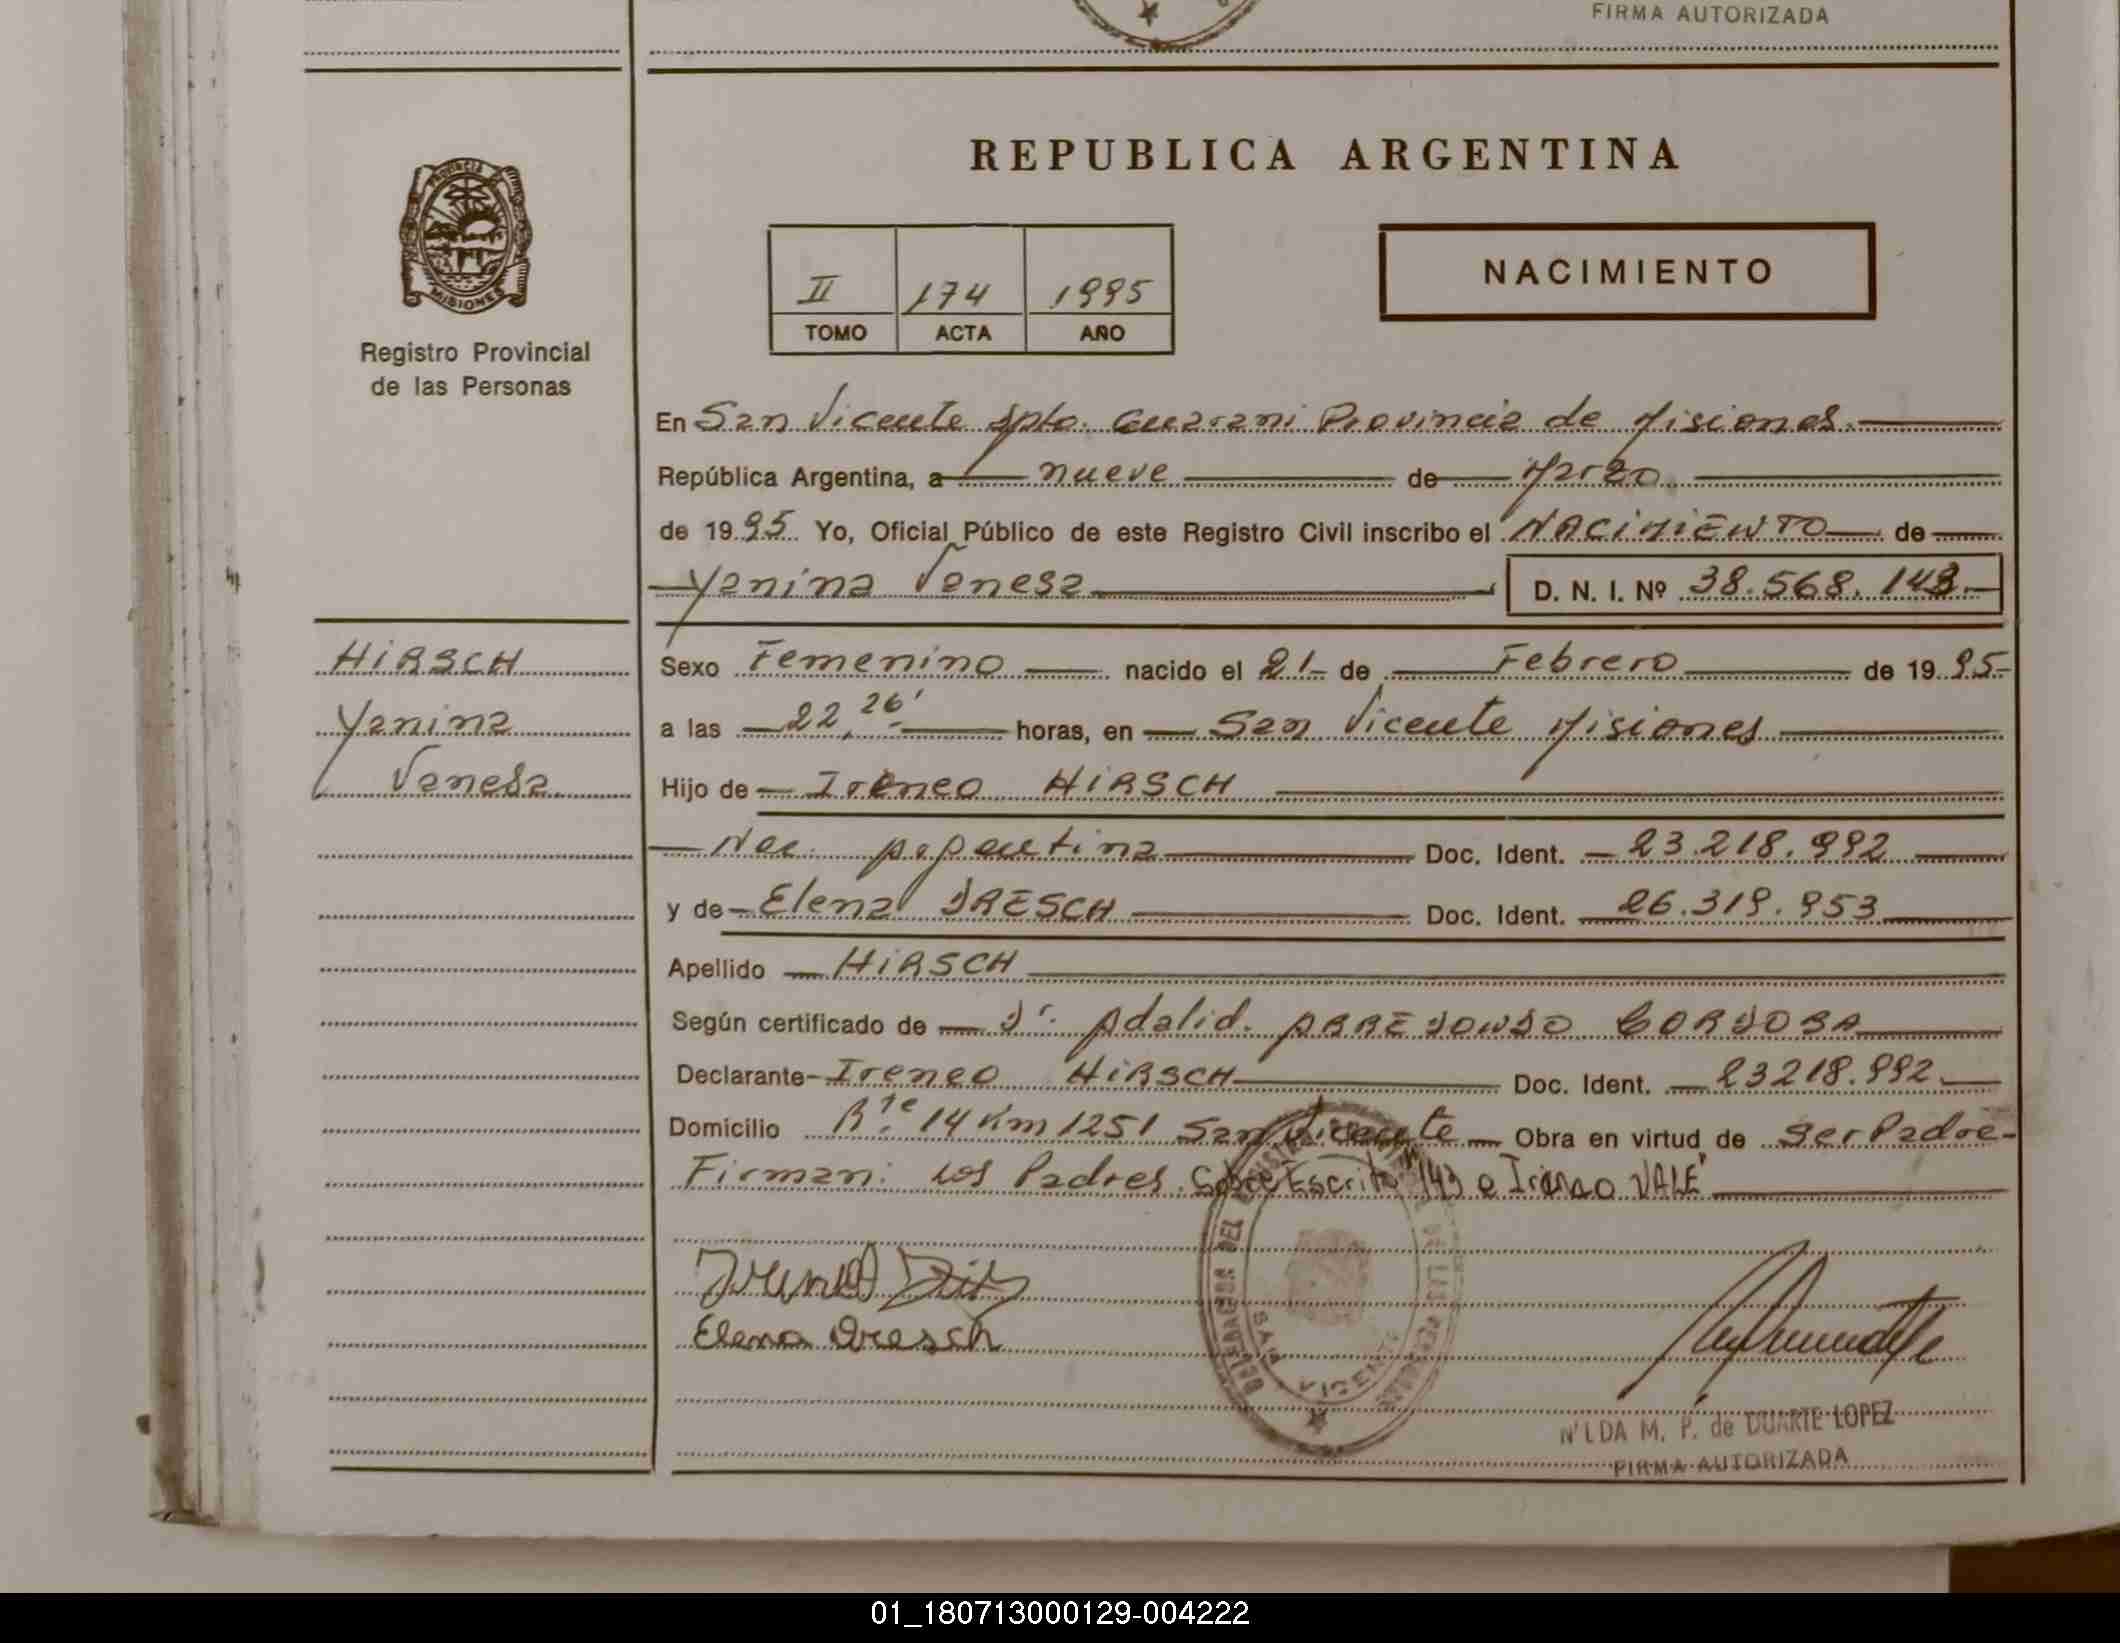 FIRMA AUTORIZADA
REPUBLICA ARGENTINA
PROVINCIA
MISIONES
Registro Provincial
de las Personas
II 174 1995
TOMO ACTA AÑO
NACIMIENTO
En San Vicente Dpto. Guarani Provincia de Misiones.
República Argentina, a nueve de Marzo
de 1995 Yo, Oficial Público de este Registro Civil inscribo el NACIMIENTO de
Yanina Vanesa D. N. I. Nº 38.568.143.
HIRSCH
Yanina
Vanesa
Sexo Femenino nacido el 21 de Febrero de 1995
a las 22,26' horas, en San Vicente Misiones
Hijo de Ireneo HIRSCH
Nac. Argentina Doc. Ident. 23.218.992
y de Elena DRESCH Doc. Ident. 26.319.953
Apellido HIRSCH
Según certificado de Dr. Adalid. ARREDONDO CORDOBA
Declarante Ireneo HIRSCH Doc. Ident. 23218.992
Domicilio Rte 14 Km 1251 San Vicente Obra en virtud de ser Padre
Firman: Los Padres. Sobre Escrito 143 e Ireneo VALE
Elena Dresch
DELEGACION DEL REGISTRO DE LAS PERSONAS
SAN VICENTE
NILDA M. P. de DUARTE LOPEZ
FIRMA AUTORIZADA
01_180713000129-004222